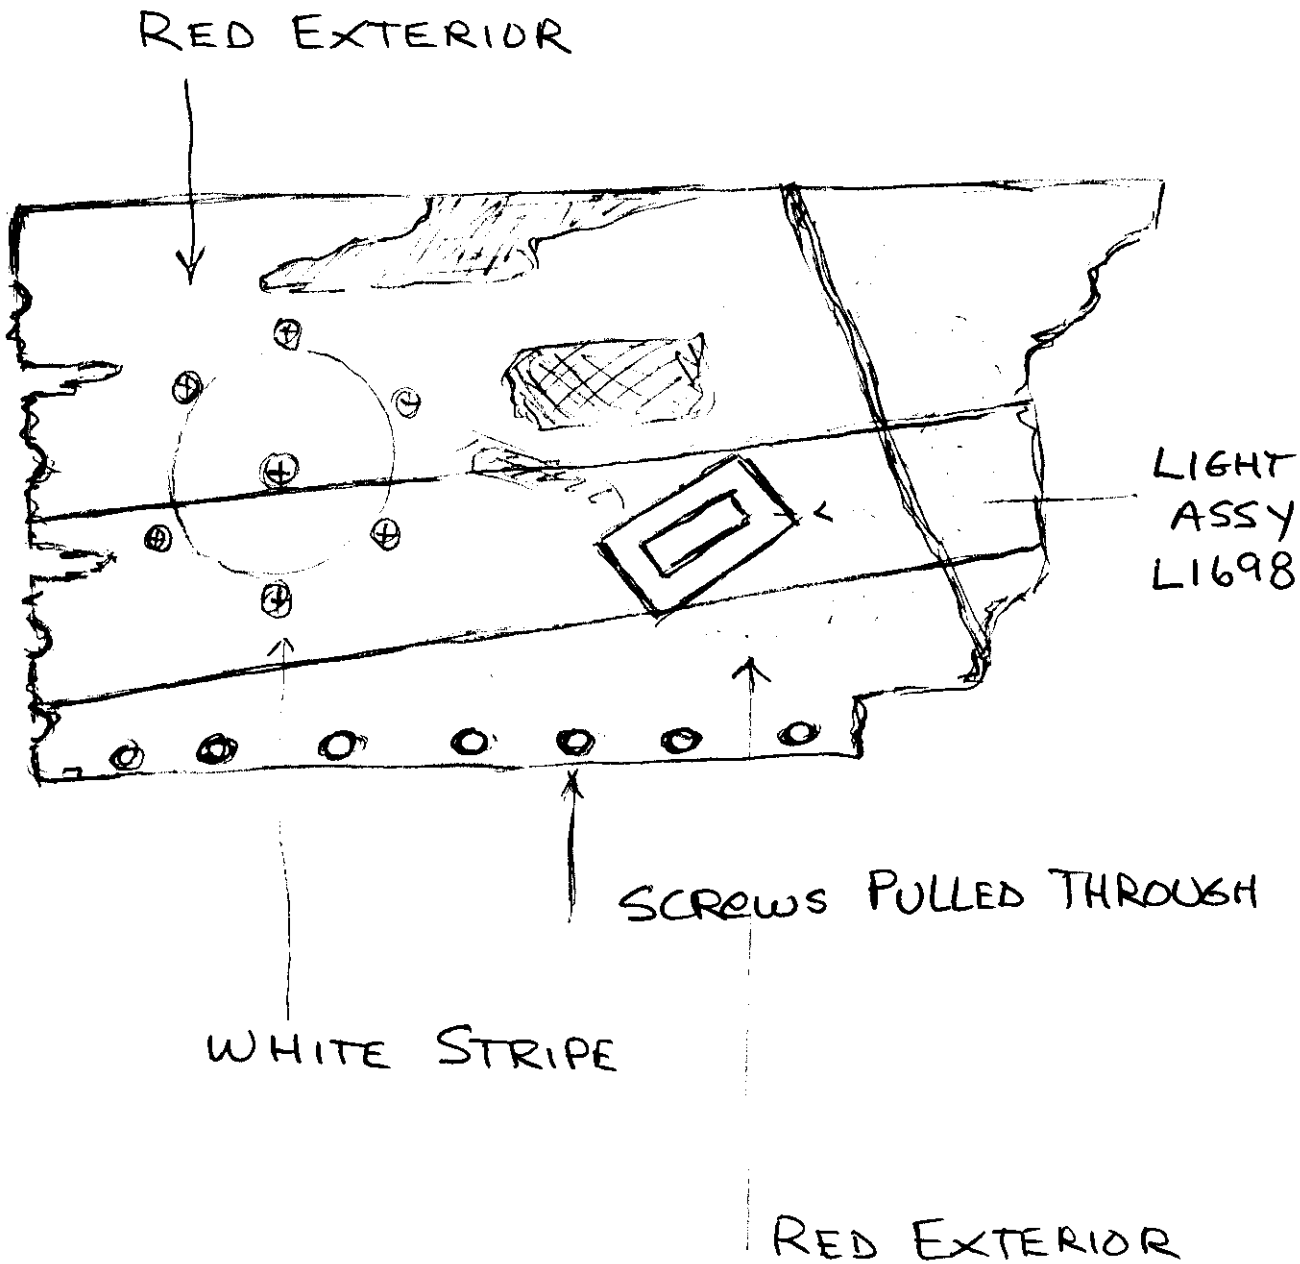 RED EXTERIOR
LIGHT
ASSY
L1698
SCREWS PULLED THROUGH
WHITE STRIPE
RED EXTERIOR